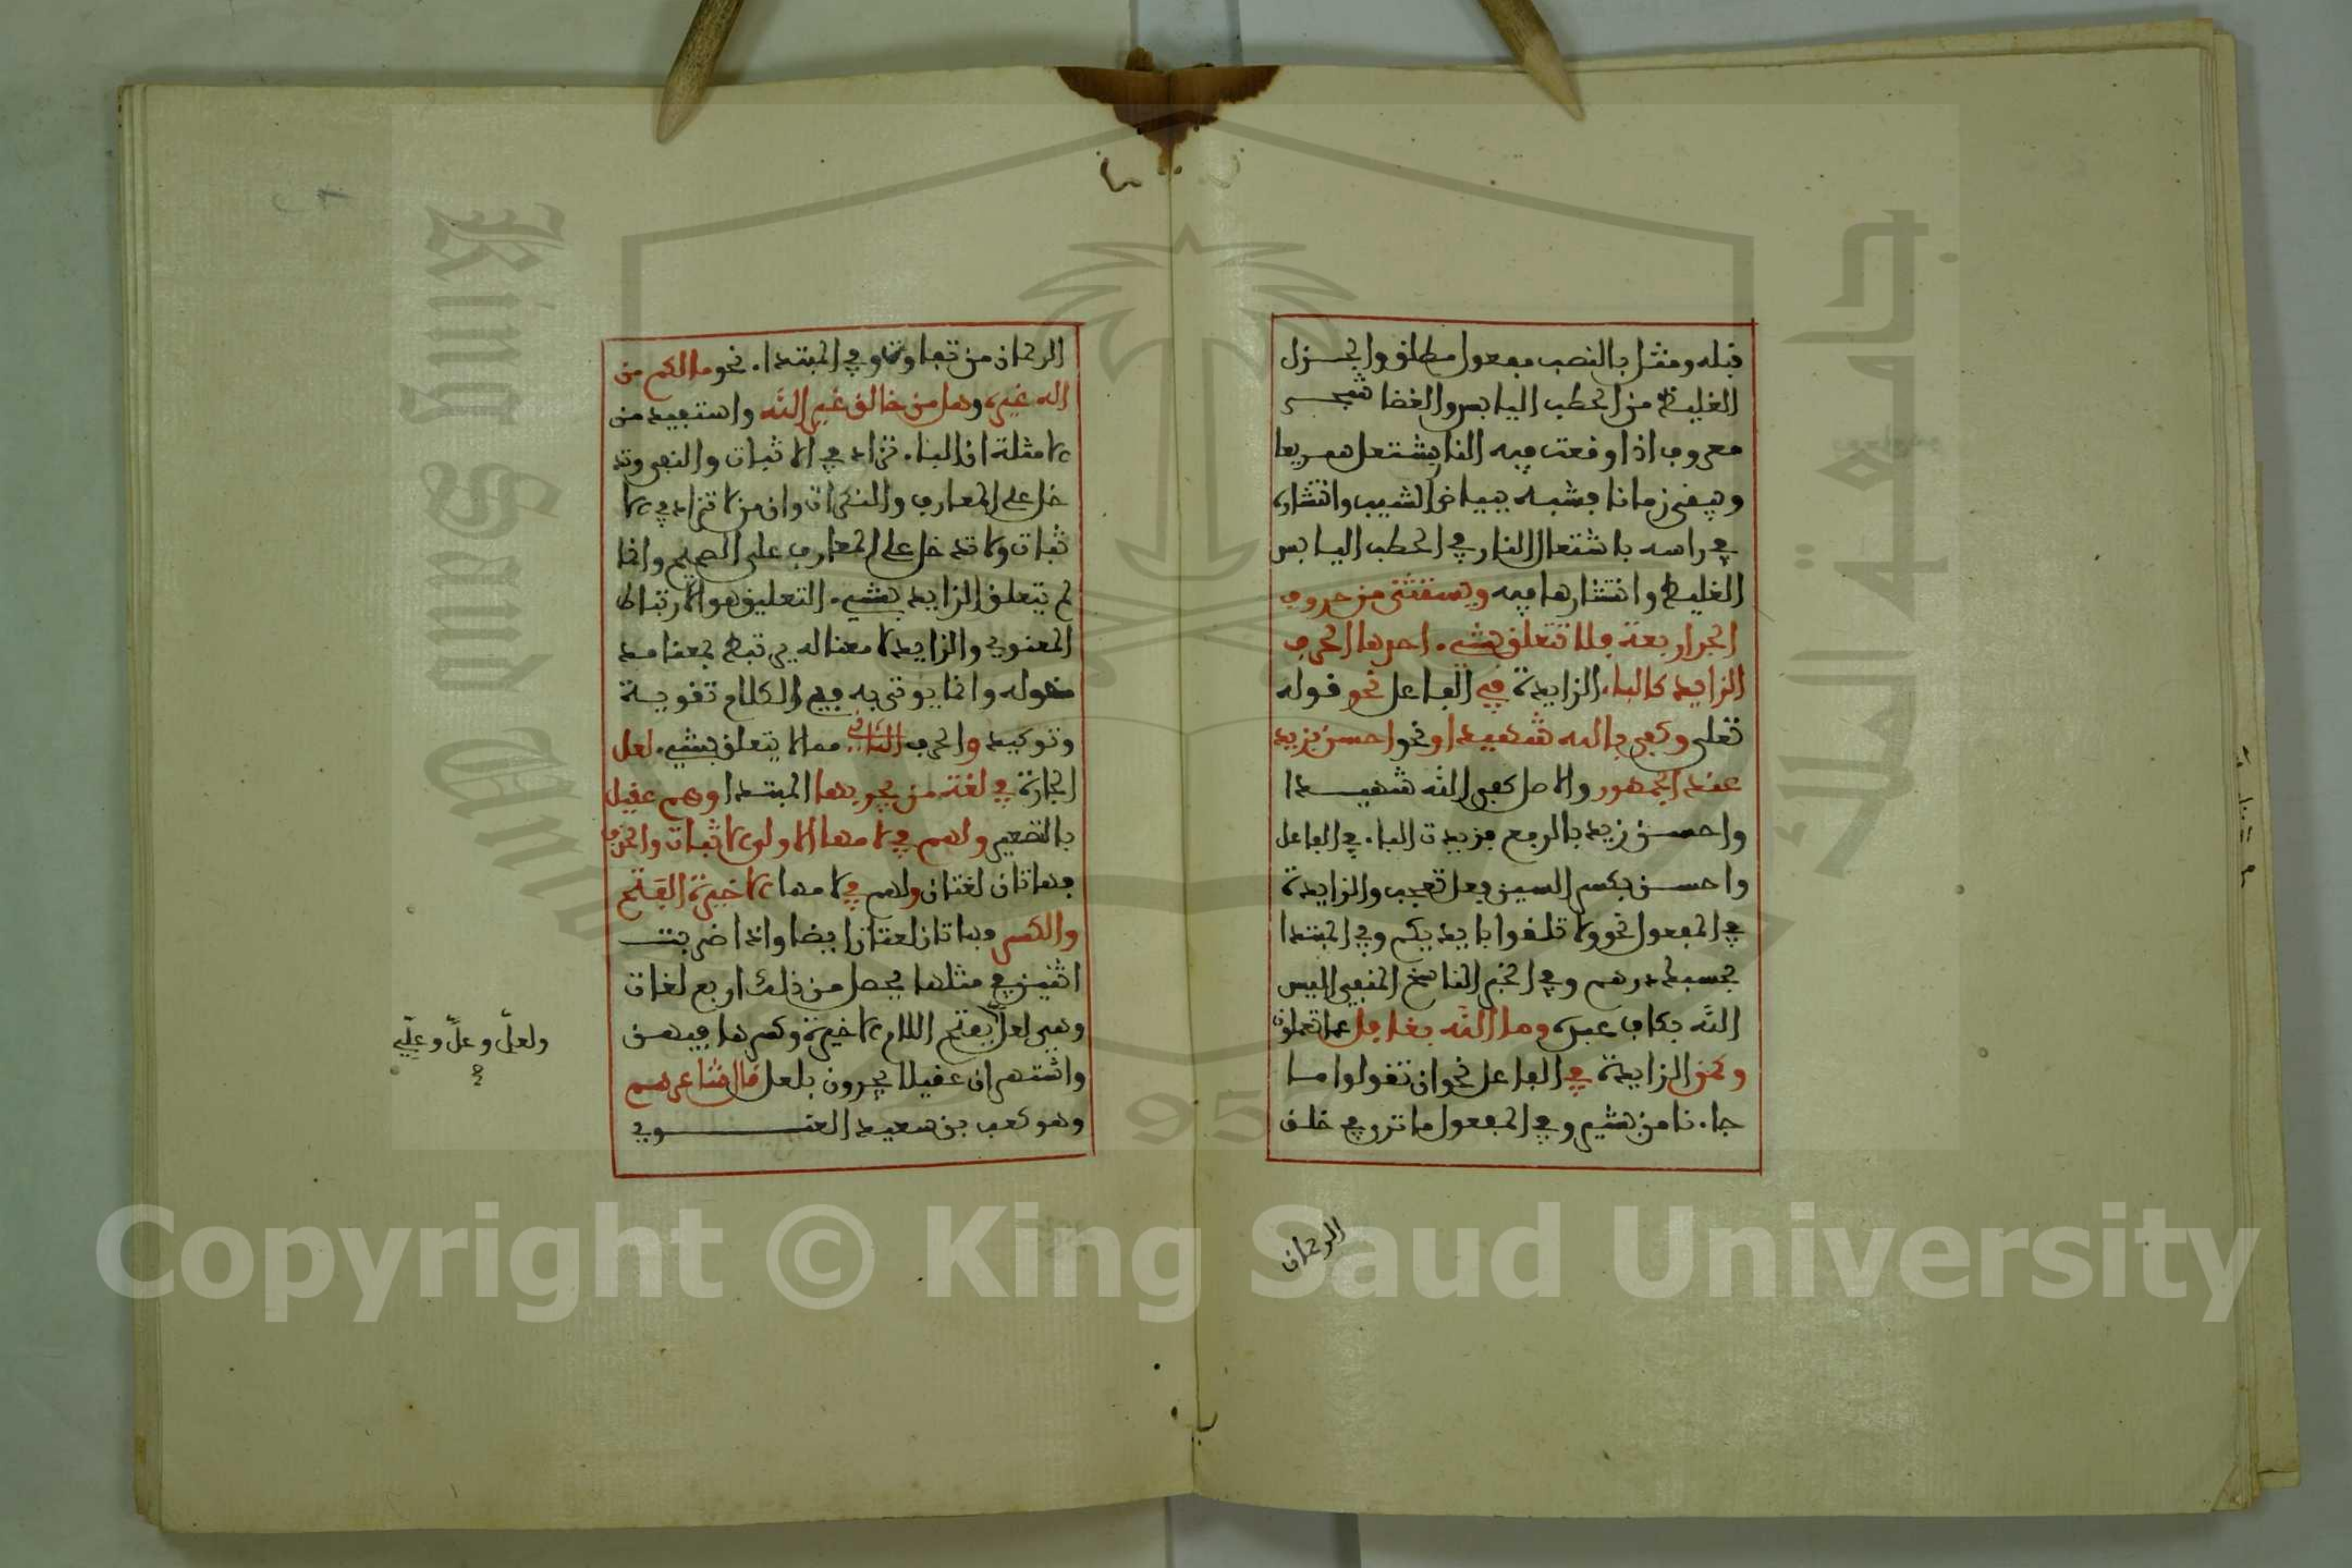 قبله ومثل بالنصب مفعول مطلق والجزل
الغليظ من الحطب اليابس والغضا شجر
معروف اذا وقعت فيه النار يشتعل سريعا
ويبقى زمانا فشبه بياض الشيب وانتشاره
في راسه باشتعال النار في الحطب اليابس
الغليظ وانتشارها فيه ويستثنى من حروف
الجر اربعة فلا تتعلق بشيء احدها الحرف
الزايد كالباء الزايدة في الفاعل نحو قوله
تعلى وكفى بالله شهيدا ونحو احسن بزيد
عند الجمهور والاصل كفى الله شهيدا
واحسن زيد بالرفع فزيدت الباء في الفاعل
واحسن بكسر السين فعل تعجب والزايدة
في المفعول نحو ولا تلقوا بايديكم وفي المبتدا
بحسبك درهم وفي الخبر الناسخ المنفي اليس
الله بكاف عبده وما الله بغافل عما تعملون
وكمن الزايدة في الفاعل نحو ان تقولوا ما
جاءنا من بشير وفي المفعول ما ترى في خلق
الرحمان
الرحمان من تفاوت وفي المبتداء نحو ما لكم من
اله غيره وهل من خالق غير الله واستفيد من
الامثلة ان الباء تزاد في الاثبات والنفي وتد
خل على المعارف والنكرات وان من لا تزاد في الا
ثبات ولا تدخل على المعارف على الصحيح وانما
لم يتعلق الزايد بشيء التعليق هو الارتباط
المعنوي والزايد لا معنا له يرتبط بمعنا مد
خوله وانما يوتى به في الكلام تقوية
وتوكيد والحرف الثاني مما لا يتعلق بشيء لعل
الجارة في لغة من يجر بها المبتدا وهم عقيل
بالتصغير ولهم في لامها الاولى الاثبات والحذف
فهاتان لغتان ولهم في لامها الاخيرة الفتح
والكسر وهاتان لغتان ايضا واذا ضربت
اثنين في مثلها يحصل من ذلك اربع لغات
وهي لعل بفتح اللام الاخيرة وكسرها فيهن
واشتهر ان عقيلا يجرون بلعل قال شاعرهم
وهو كعب بن سعيد الغنوي
ولعلّ وعلّ وعلّ
Copyright © King Saud University
King Saud University
جامعة الملك
957